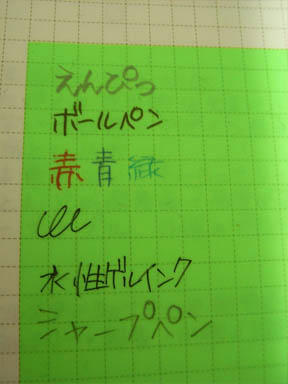 えんぴつ
ボールペン
赤青緑
水性ゲルインク
シャープペン